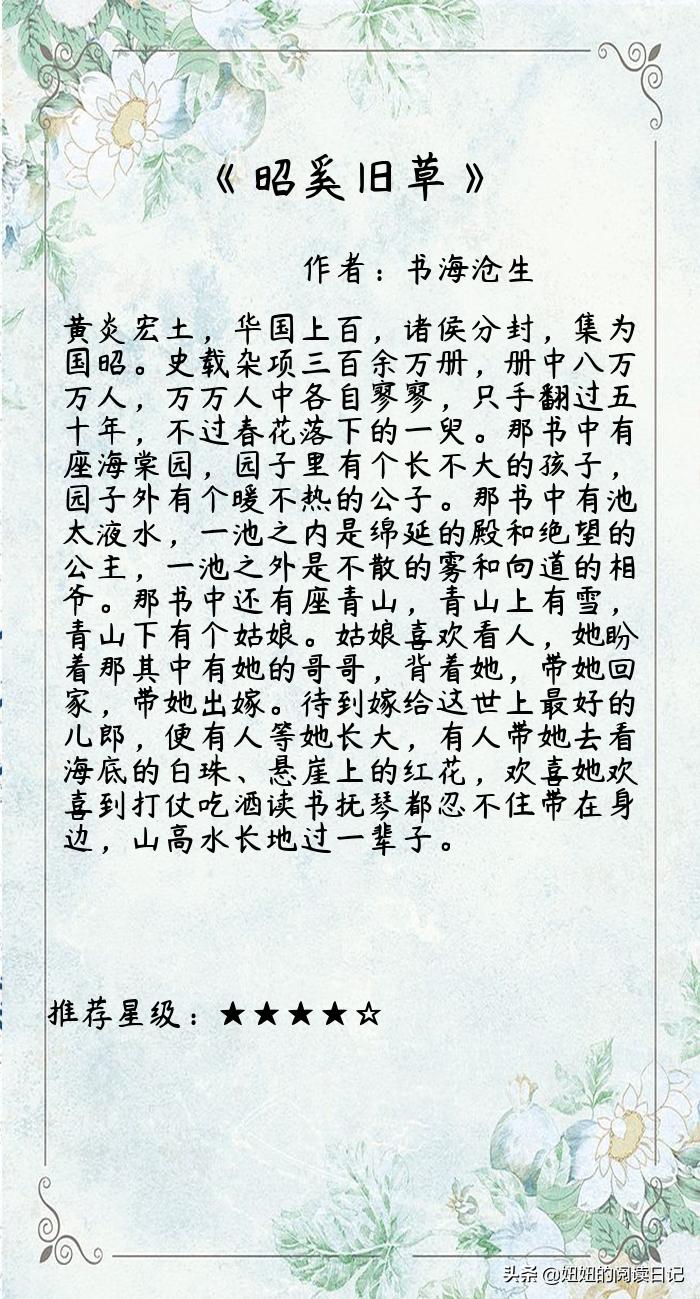 《昭奚旧草》
作者：书海沧生
黄炎宏土，华国上百，诸侯分封，集为
国昭。史载杂项三百余万册，册中八万
万人，万万人中各自寥寥，只手翻过五
十年，不过春花落下的一臾。那书中有
座海棠园，园子里有个长不大的孩子，
园子外有个暖不热的公子。那书中有池
太液水，一池之内是绵延的殿和绝望的
公主，一池之外是不散的雾和向道的相
爷。那书中还有座青山，青山上有雪，
青山下有个姑娘。姑娘喜欢看人，她盼
着那其中有她的哥哥，背着她，带她回
家，带她出嫁。待到嫁给这世上最好的
儿郎，便有人等她长大，有人带她去看
海底的白珠、悬崖上的红花，欢喜她欢
喜到打仗吃酒读书抚琴都忍不住带在身
边，山高水长地过一辈子。
推荐星级：★★★★☆
头条 @妞妞的阅读日记